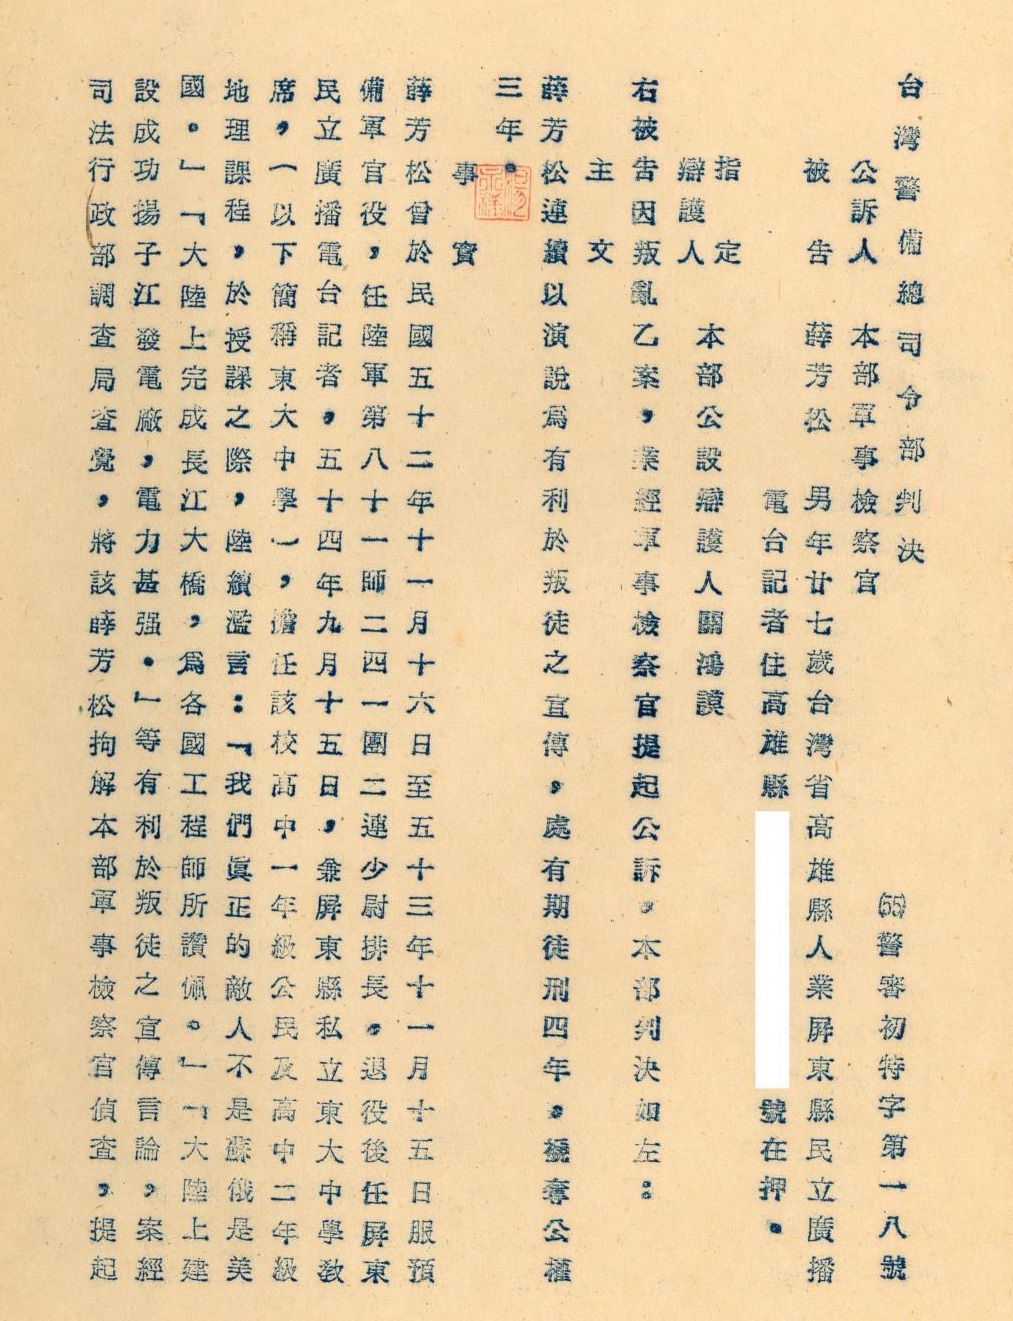 台灣警備總司令部判決
(55)警審初特字第一八號
公訴人　本部軍事檢察官
被告　薛芳松　男年廿七歲台灣省高雄縣人業屏東縣民立廣播
電台記者住高雄縣　號在押。
指定
辯護人　本部公設辯護人關鴻謨
右被告因叛亂乙案，業經軍事檢察官提起公訴，本部判決如左：
主文
薛芳松連續以演說爲有利於叛徒之宣傳，處有期徒刑四年。褫奪公權
三年。
事實
薛芳松曾於民國五十二年十一月十六日至五十三年十一月十五日服預
備軍官役，任陸軍第八十一師二四一團二連少尉排長。退役後任屏東
民立廣播電台記者，五十四年九月十五日，兼屏東縣私立東大中學教
席，（以下簡稱東大中學），擔任該校高中一年級公民及高中二年級
地理課程，於授課之際，陸續濫言：「我們眞正的敵人不是蘇俄是美
國。」「大陸上完成長江大橋，爲各國工程師所讚佩。」「大陸上建
設成功揚子江發電廠，電力甚强。」等有利於叛徒之宣傳言論，案經
司法行政部調查局查覺，將該薛芳松拘解本部軍事檢察官偵查，提起